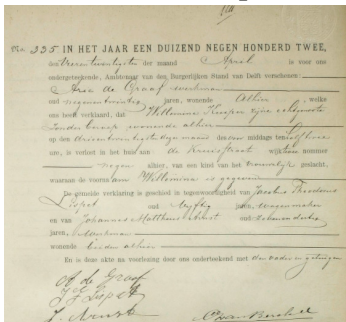 No. 335 IN HET JAAR EEN DUIZEND NEGEN HONDERD TWEE,
den vierentwintigsten der maand April is voor ons
ondergeteekende, Ambtenaar van den Burgerlijken Stand van Delft verschenen:
Arie de Graaf werkman
oud negenentwintig jaren, wonende Alhier, welke
ons heeft verklaard, dat Willemina Kuiper zijne echtgenoote
zonder beroep wonende alhier
op den drieentwintigsten dezer maand des voor middags ten elf ure
is verlost in het huis aan de Kruisstraat wijk nommer
negen alhier, van een kind van het vrouwelijk geslacht,
waaraan de voornaam Willemina is gegeven
De gemelde verklaring is geschied in tegenwoordigheid van Jacobus Theodorus
Lispet oud vijftig jaren, wagenmaker
en van Johannes Mattheus oud
jaren, werkman
wonende beiden alhier
En is deze akte na voorlezing door ons onderteekend met den vader en getuigen
A de Graaf
J T Lispet
J.